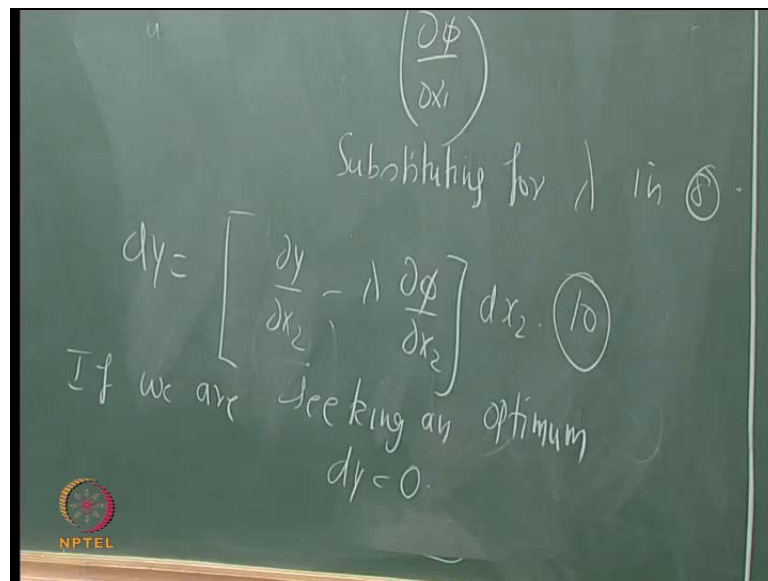 (∂φ/∂x₁)
Substituting for λ in ⑧.
dy = [∂y/∂x₂ - λ ∂φ/∂x₂] dx₂. ⑩
If we are seeking an optimum
dy = 0.
NPTEL